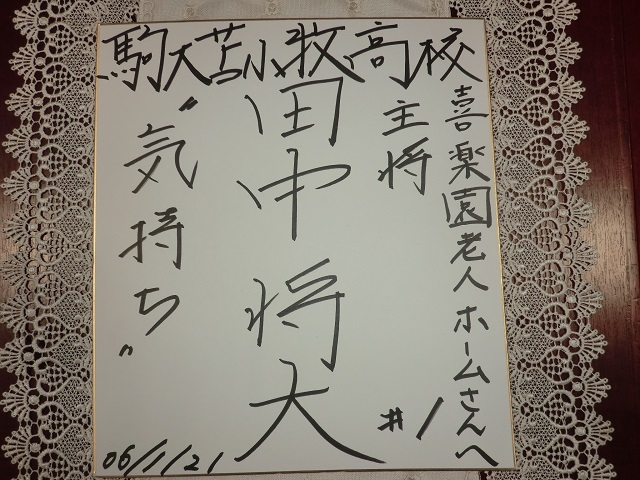 駒大苫小牧高校
喜楽園老人ホームさんへ
主将
#1
田中将大
"気持ち"
06/11/21